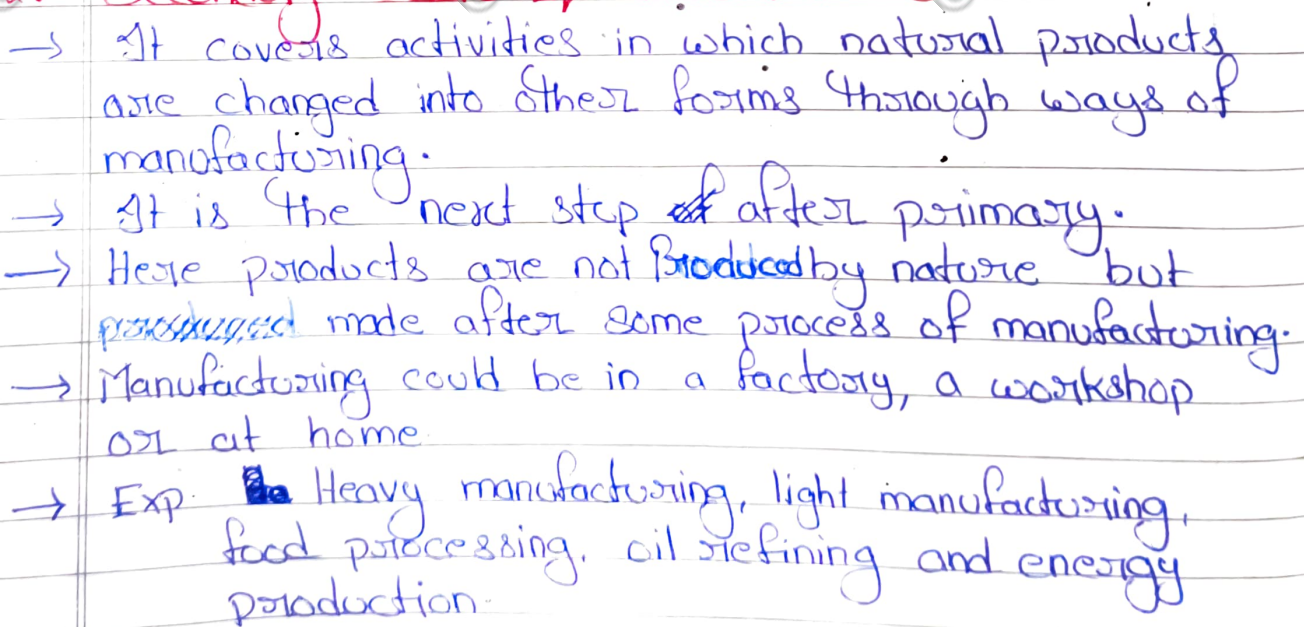 → It covers activities in which natural products
are changed into other forms through ways of
manufacturing.
→ It is the next step after primary.
→ Here products are not Produced by nature but
made after some process of manufacturing.
→ Manufacturing could be in a factory, a workshop
or at home
→ Exp. Heavy manufacturing, light manufacturing,
food processing, oil refining and energy
production.